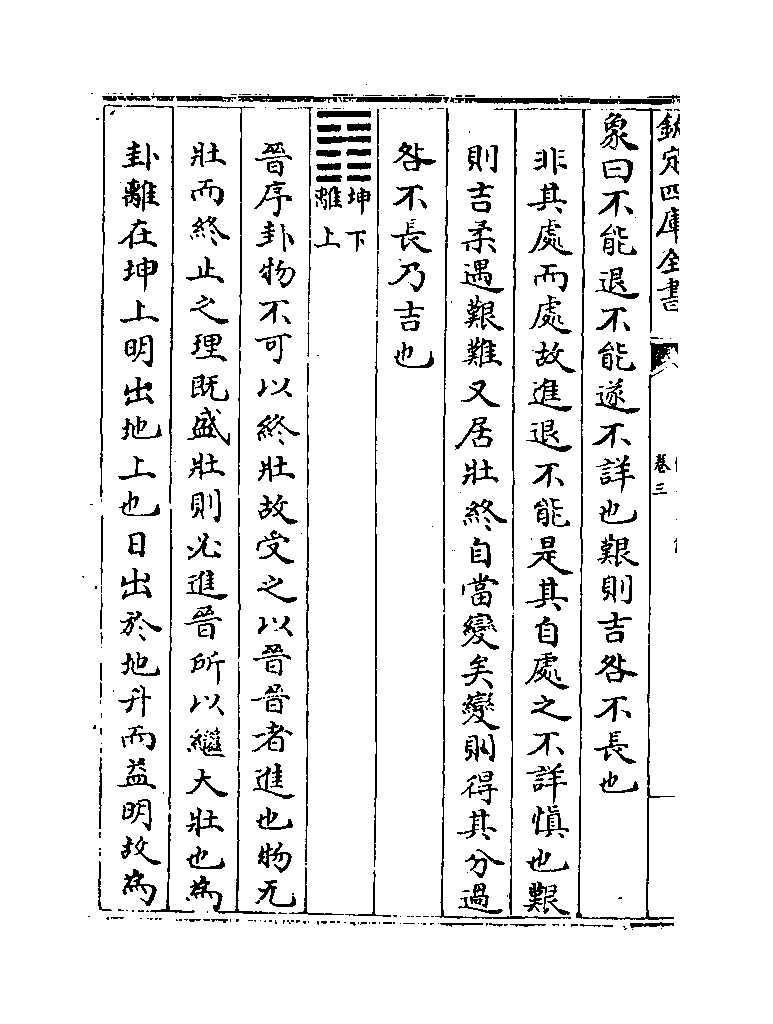 欽定四庫全書
卷三
象曰不能退不能遂不詳也艱則吉咎不長也
非其處而處故進退不能是其自處之不詳慎也艱
則吉柔遇艱難又居壯終自當變矣變則得其分過
咎不長乃吉也
坤下
離上
晉序卦物不可以終壯故受之以晉晉者進也物无
壯而終止之理既盛壯則必進晉所以繼大壯也為
卦離在坤上明出地上也日出於地升而益明故為